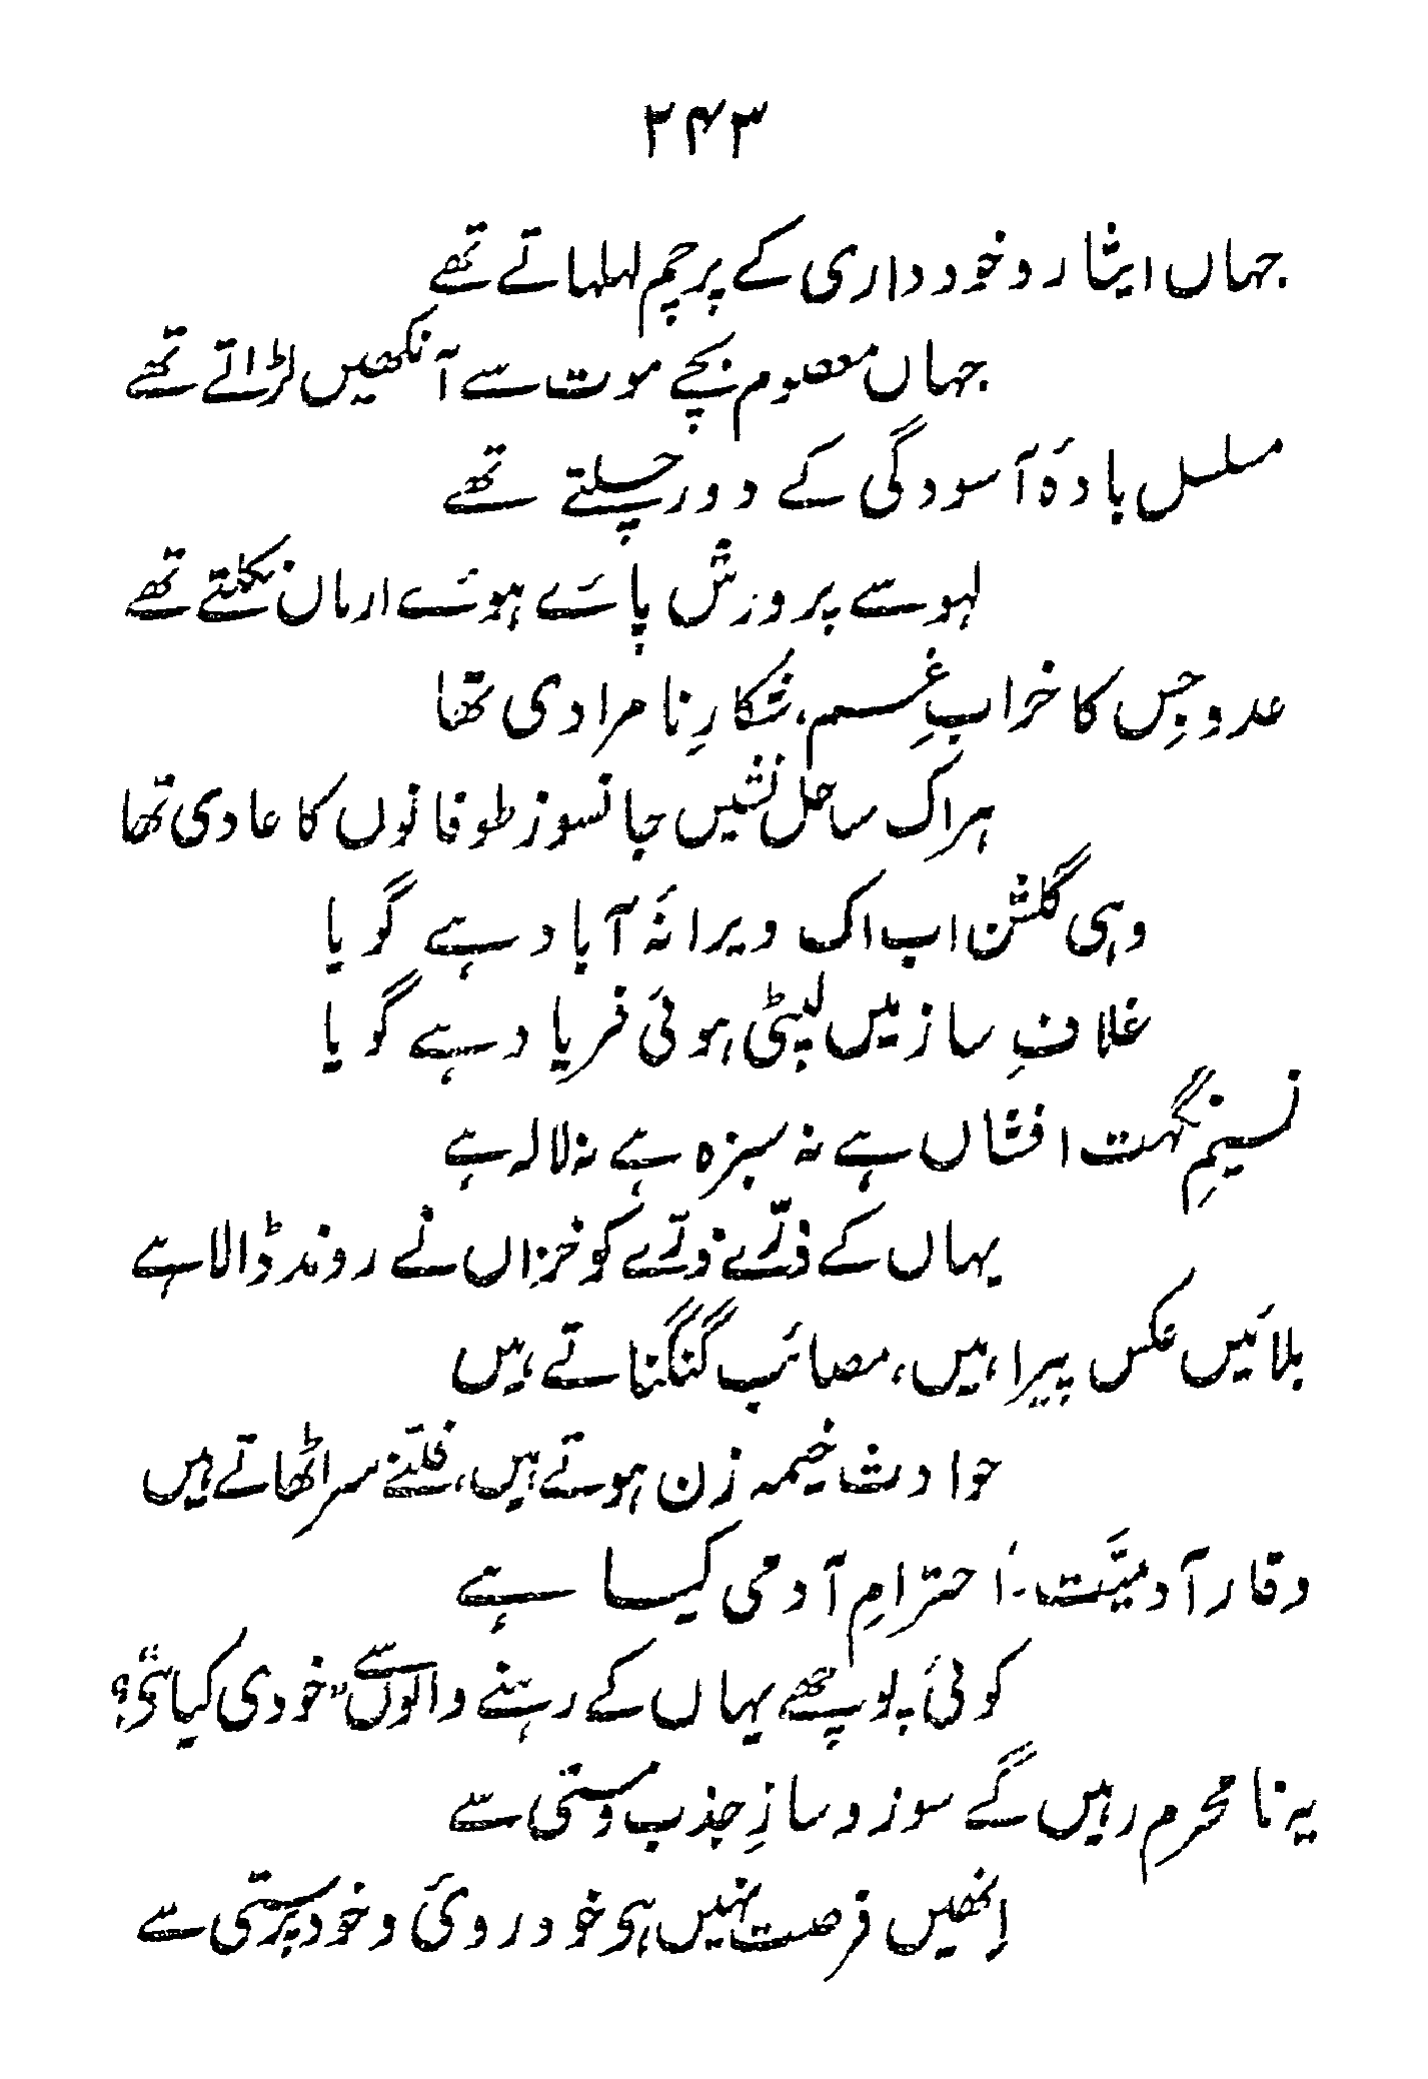 ۲۴۳
جہاں ایثار و خودداری کے پرچم لہلہاتے تھے
جہاں معصوم بچے موت سے آنکھیں لڑاتے تھے
مسلسل بادۂ آسودگی کے دور چلتے تھے
لہو سے پرورش پائے ہوئے ارمان نکلتے تھے
عدو جس کا خرابِ غم، شکارِ نامرادی تھا
ہر اک ساحل نشیں جانسوز طوفانوں کا عادی تھا
وہی گلشن اب اک ویرانۂ آباد ہے گویا
غلافِ ساز میں لپٹی ہوئی فریاد ہے گویا
نسیمِ نگہت افشاں ہے نہ سبزہ ہے نہ لالہ ہے
یہاں کے ذرّے ذرّے کو خزاں نے روند ڈالا ہے
بلائیں عکس پیرا ہیں، مصائب گنگناتے ہیں
حوادث خیمہ زن ہوتے ہیں، فتنے سر اٹھاتے ہیں
وقار آدمیّت۔ احترامِ آدمی کیسا ہے
کوئی پوچھے یہاں کے رہنے والوں سے "خودی کیا ہی"؟
یہ نا محرم رہیں گے سوز و سازِ جذب و مستی سے
اِنھیں فرصت نہیں ہی خود روئی و خود پرستی سے